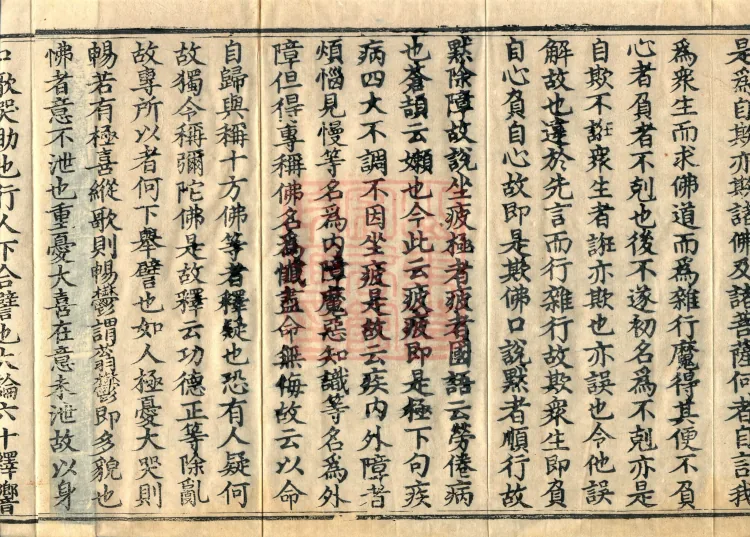 是為自欺亦欺誑佛及誑菩薩何者自言我
為衆生而求佛道而為雜行魔得其便不負
心者負者不剋也後不遂初名為不剋亦是
自欺不誑衆生者誑亦欺也亦誤也令他誤
解故也違於先言而行雜行故欺衆生即負
自心負自心故即是欺佛口說黙者順行故
黙除障故說坐疲極者疲者國語云勞倦病
也蒼頡云嬾也今此云疲疲即是極下句疾
病四大不調不因坐疲是故云疾内外障者
煩惱見慢等名為内障魔惡知識等名為外
障但得專稱佛名為懺盖命無侮故云以命
自歸與稱十方佛等者釋疑也恐有人疑何
故獨令稱彌陀佛是故釋云功德正等除亂
故專所以者何下舉譬也如人極憂大哭則
暢若有極喜縱歌則暢鬱謂蓊鬱即多貌也
怫者意不泄也重憂大喜在意未泄故以身
口歌哭助也行人下合譬也六論六十釋響